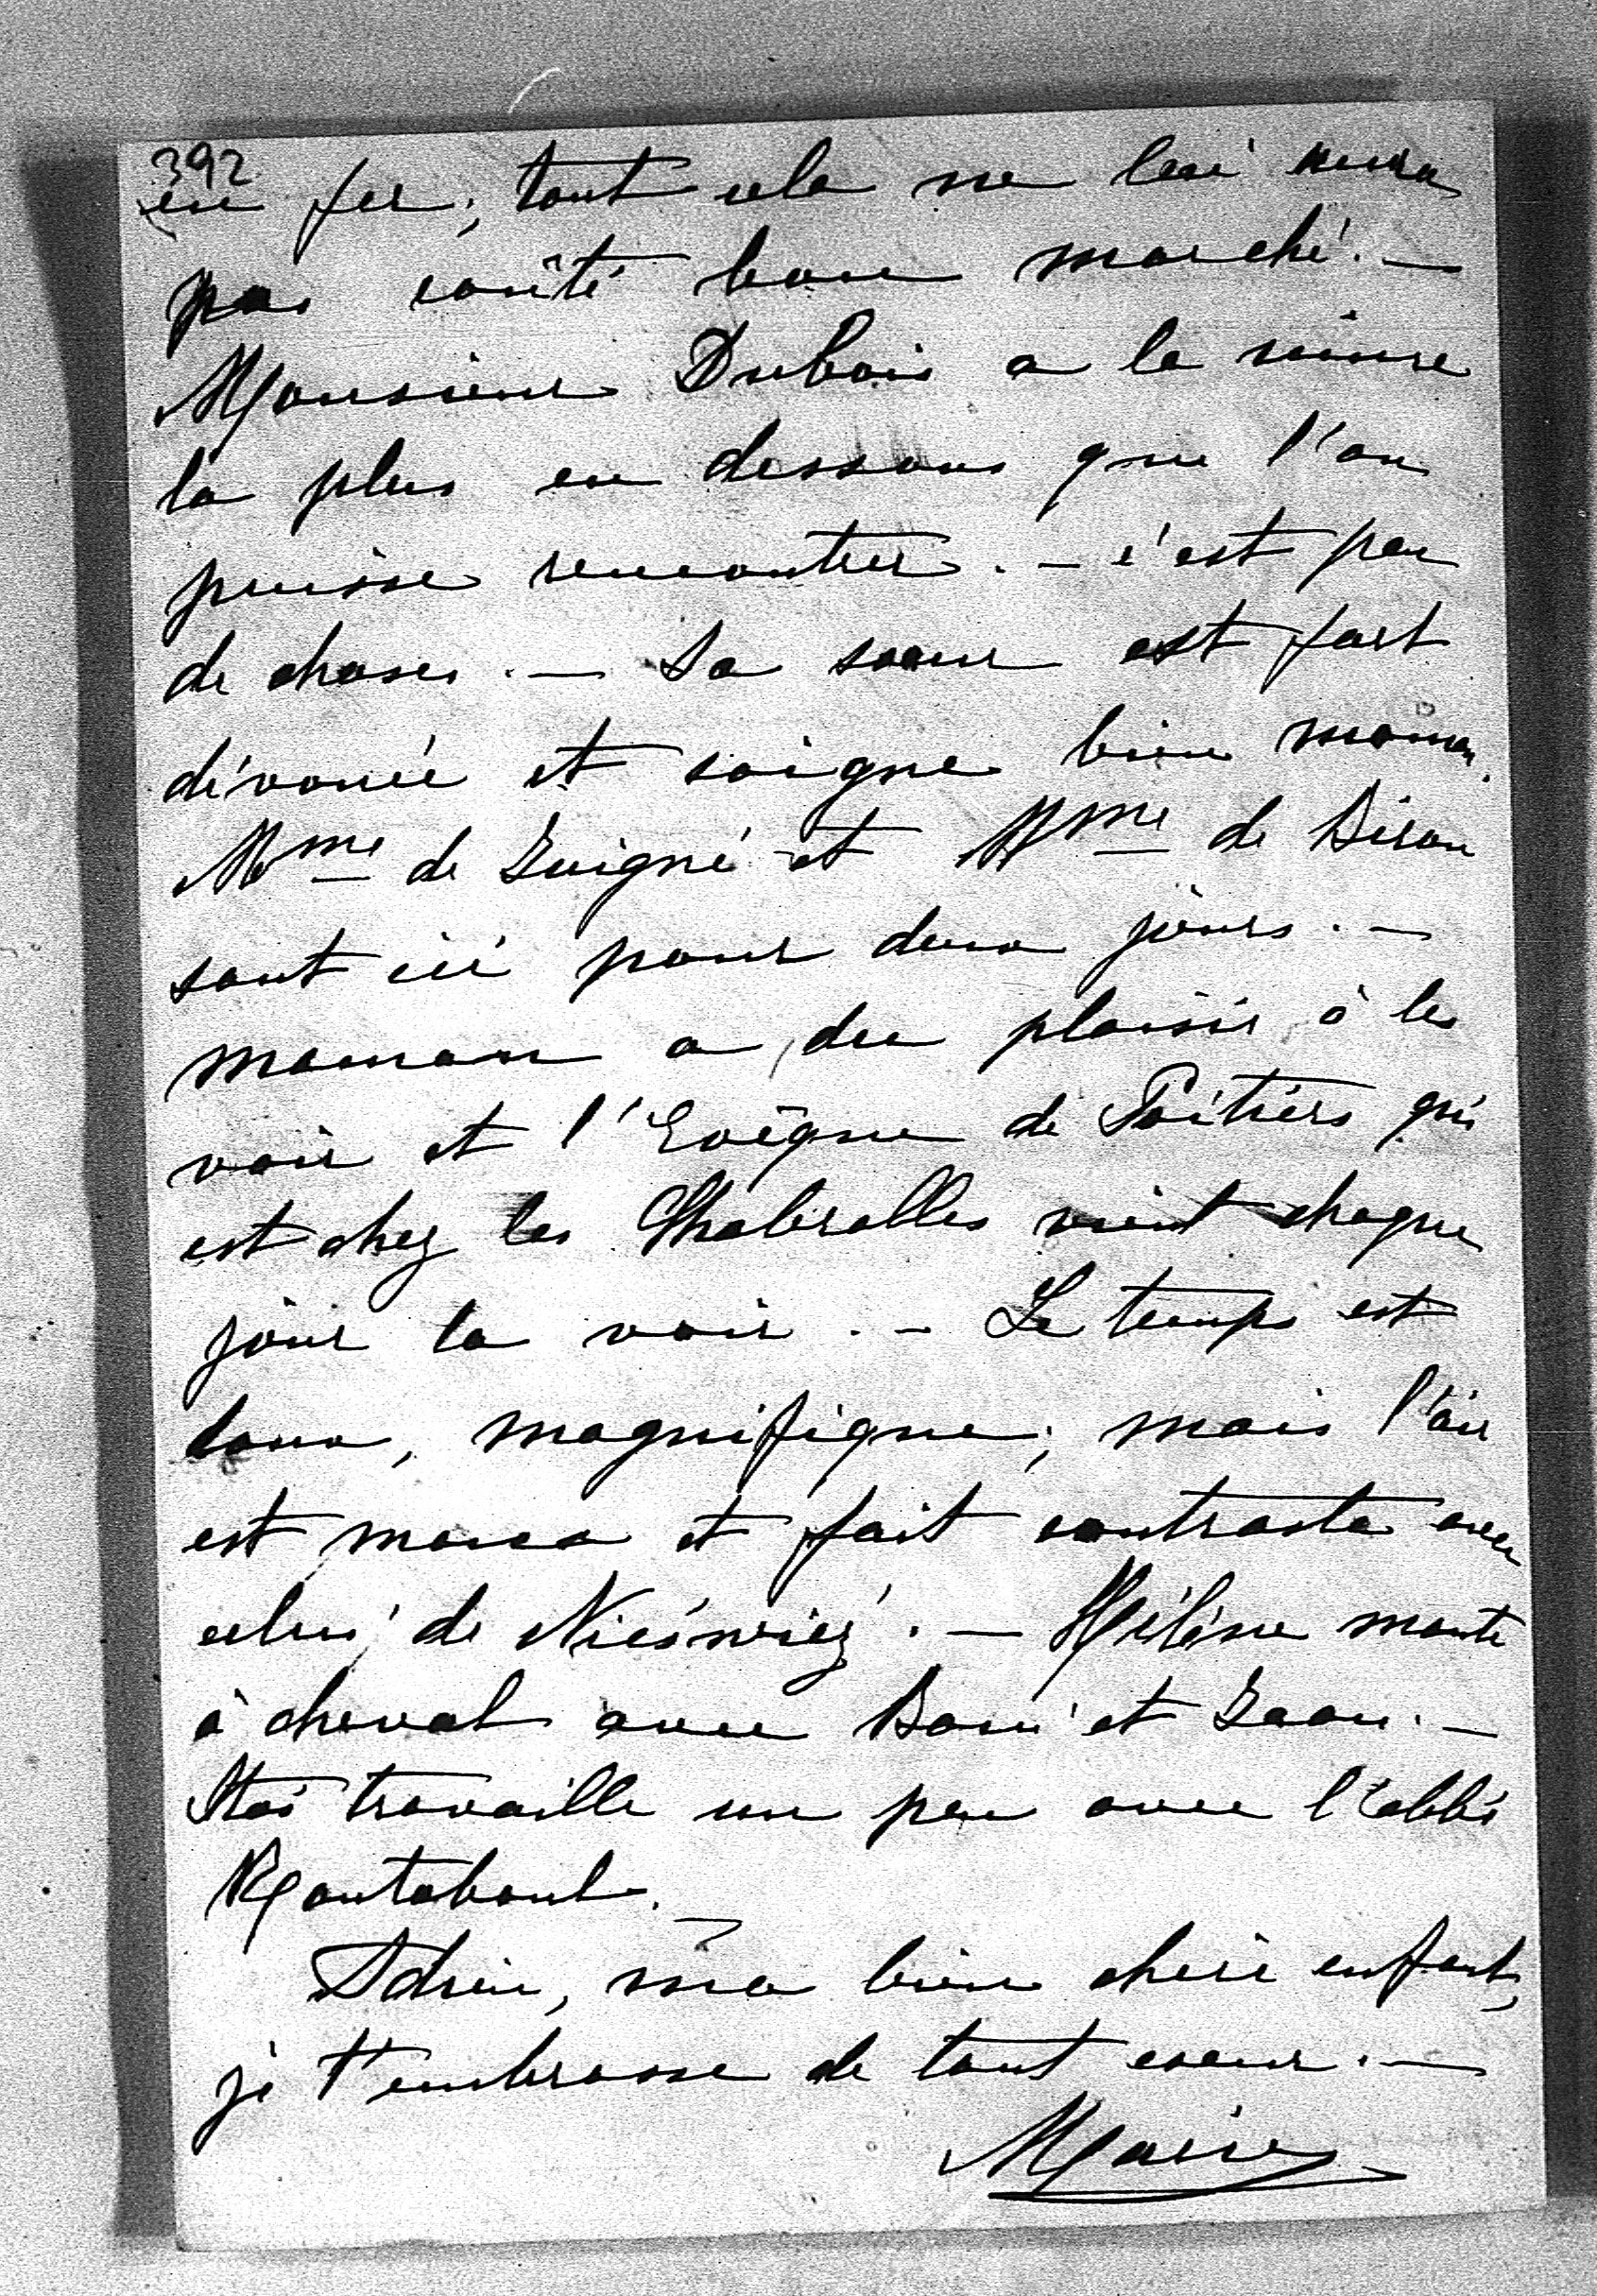 392
en fer; tout cela ne lui aura
pas coûté bon marché. —
Monsieur Dubois a la mine
la plus en dessous que l'on
puisse rencontrer. — c'est peu
de choses. — Sa soeur est fort
dévouée et soigne bien maman.
Mme de et Mme de Biron
sont ici pour deux jours. —
maman a du plaisir à les
voir et l'Evêque de Poitiers qui
est chez les vient chaque
jour la voir. — Le temps est
doux, magnifique; mais l'air
est mou et fait contraste avec
celui de Nieświeź. — Hélène monte
à cheval avec Boni et Jean. —
Stas travaille un peu avec l'abbé
Montaboul.
Adieu, ma bien chère enfant,
je t'embrasse de tout coeur. —
Marie